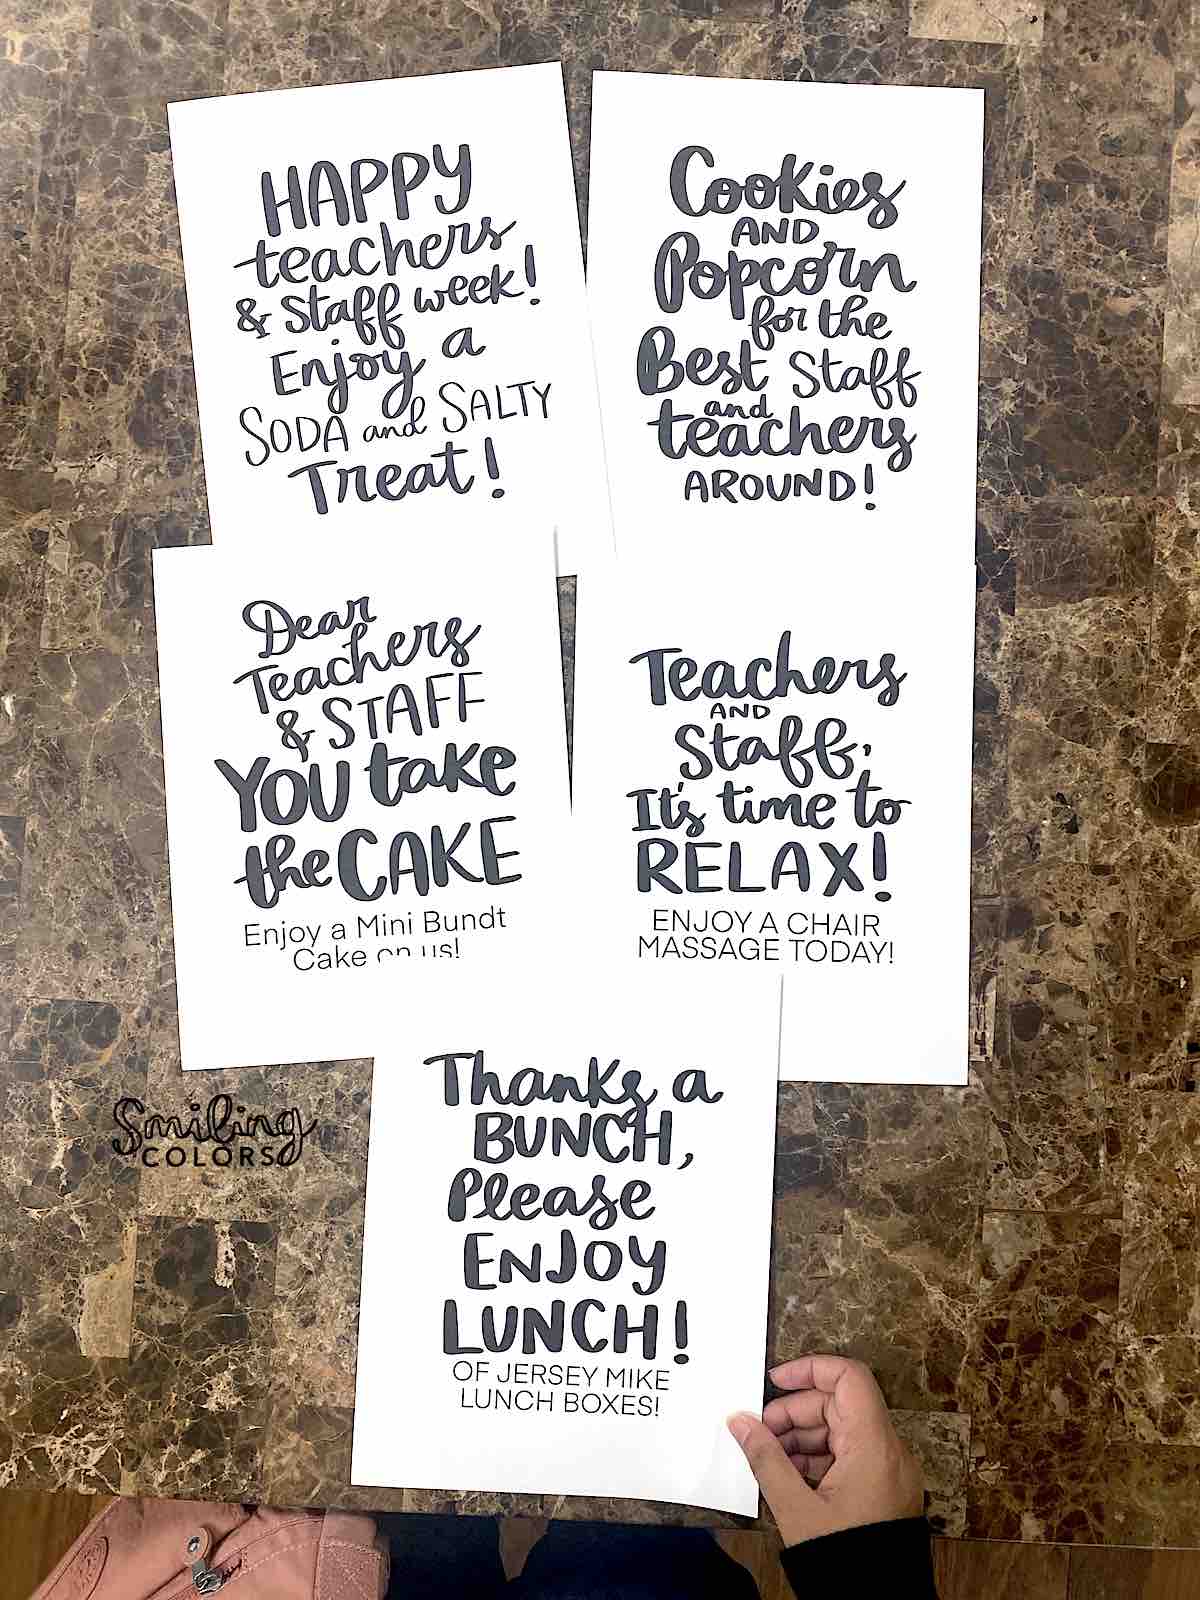 HAPPY
teachers
& Staff week!
Enjoy a
SODA and SALTY
Treat!
Cookies
AND
Popcorn
for the
Best Staff
and
teachers
AROUND!
Dear
Teachers
& STAFF
YOU take
the CAKE
Enjoy a Mini Bundt
Cake on us!
Teachers
AND
Staff,
It's time to
RELAX!
ENJOY A CHAIR
MASSAGE TODAY!
Thanks a
BUNCH,
Please
ENJOY
LUNCH!
OF JERSEY MIKE
LUNCH BOXES!
Smiling
COLORS